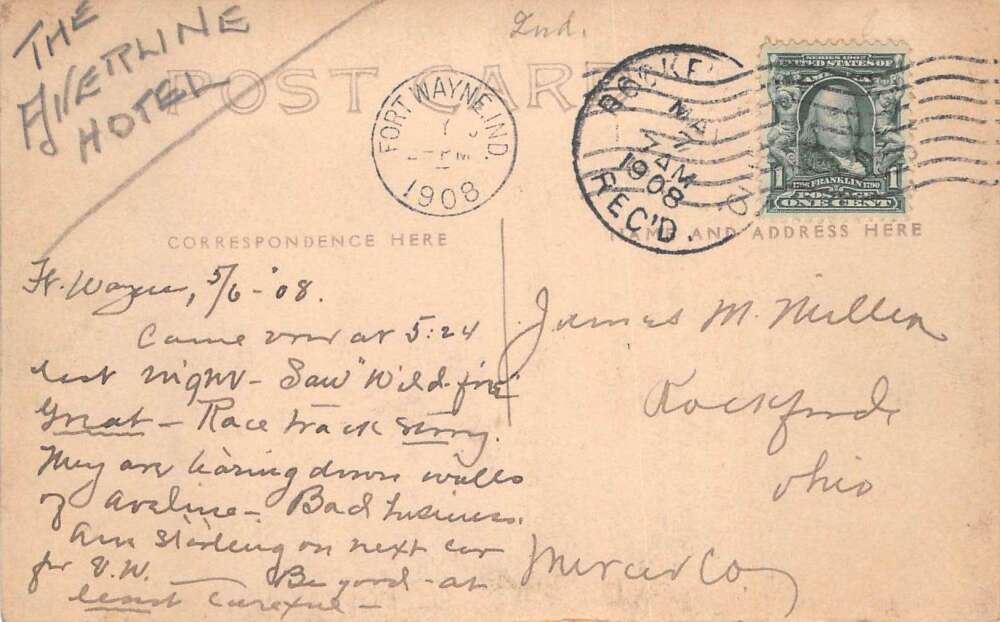 THE
AVERLINE
HOTEL
Ind.
POST CARD
FORT WAYNE, IND.
2-PM
1908
ROCKF
MAY
7
7AM
1908
REC'D.
SERIES 1902
UNITED STATES OF
AMERICA
1 1706 FRANKLIN 1790 1
POSTAGE
ONE CENT
CORRESPONDENCE HERE
NAME AND ADDRESS HERE
Ft. Wayne, 5/6-'08.
Came over at 5:24
last night - Saw "Wildfire"
Great - Race track story.
They are tearing down walls
of Aveline - Bad business.
Am starting on next car
for V.W. — Be good - at
least careful -
James M. Miller
Rockford
Ohio
Mercer Co.